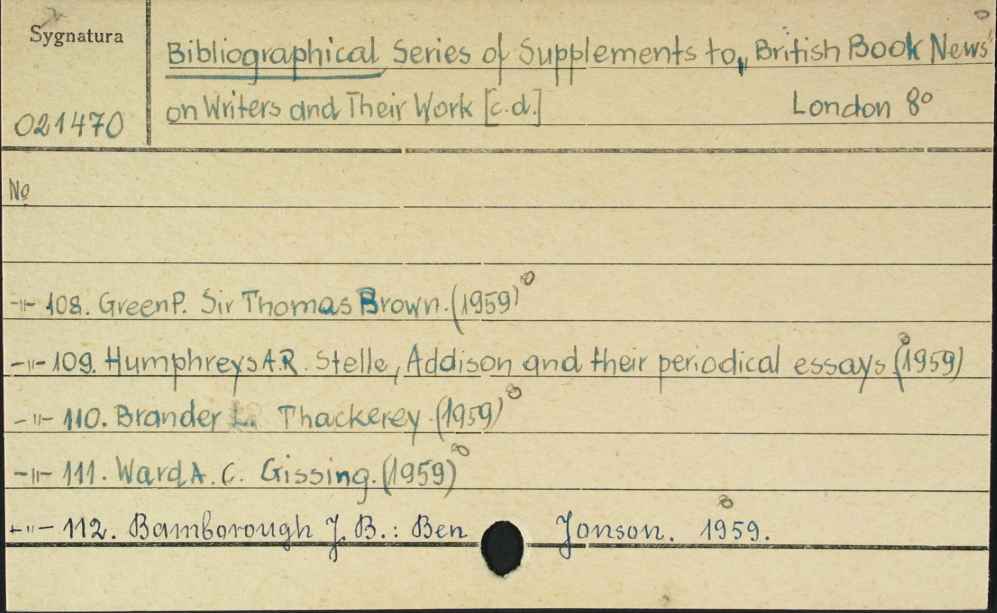 Sygnatura
021470
Bibliographical Series of Supplements to „British Book News"
on Writers and Their Work [c.d.] London 8º
Nº
-"- 108. Green P. Sir Thomas Brown. (1959)
-"- 109. Humphreys A.R. Stelle, Addison and their periodical essays (1959)
-"- 110. Brander L. Thackerey. (1959)
-"- 111. Ward A. C. Gissing. (1959)
-"- 112. Bamborough J. B.: Ben Jonson. 1959.